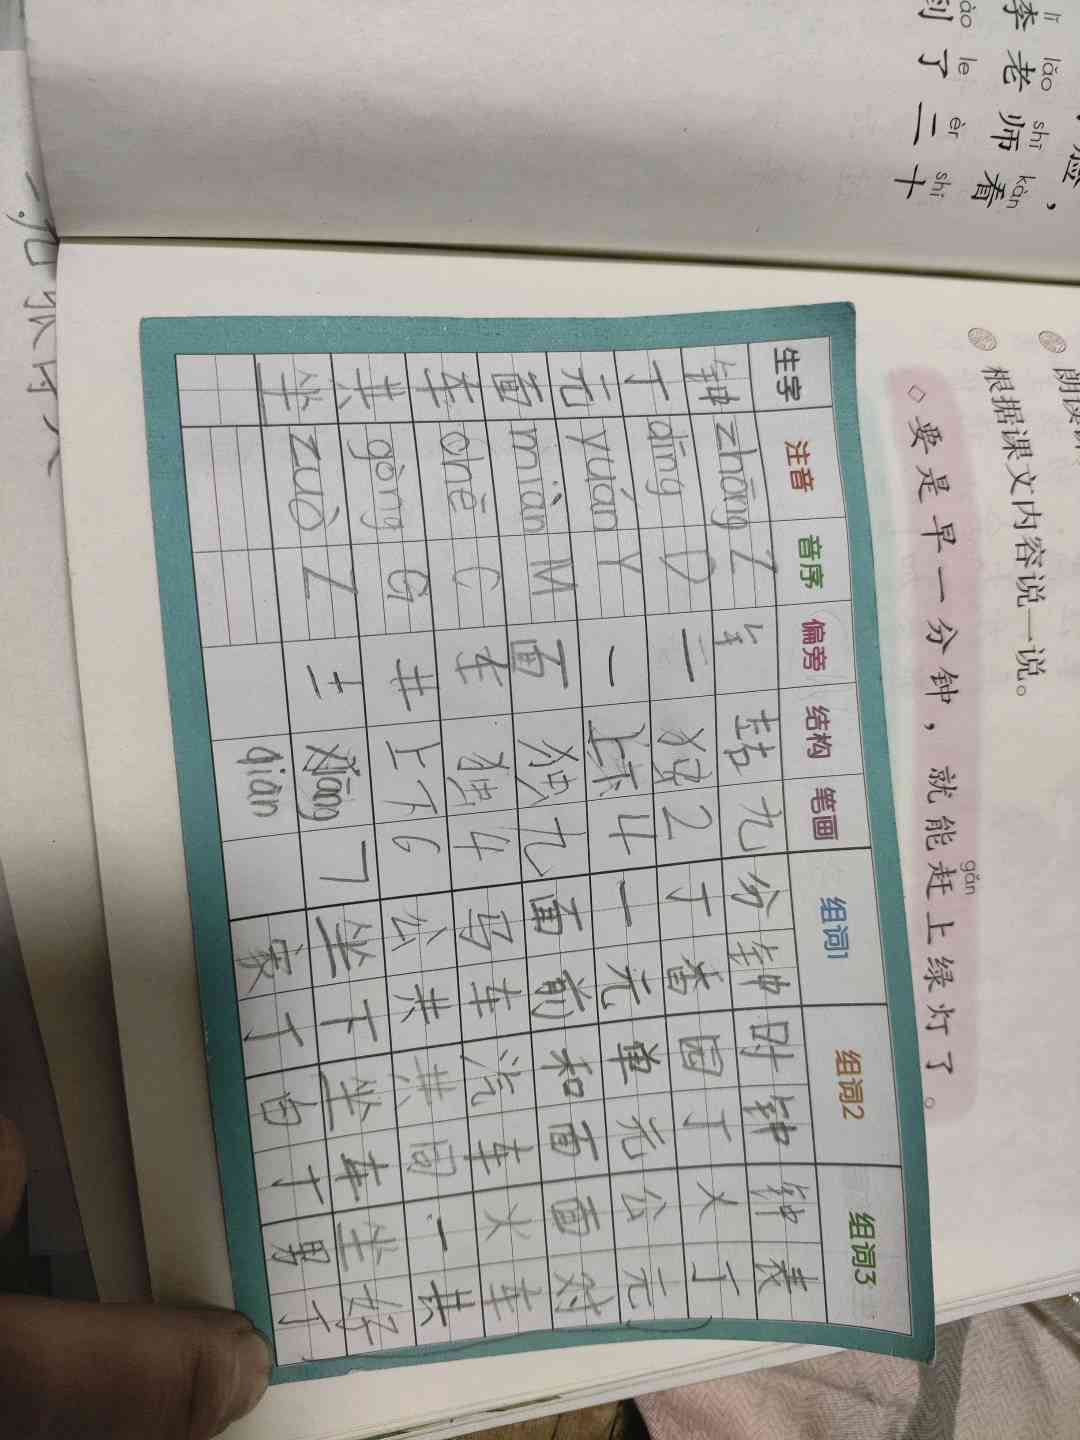 lǐ lǎo shī kàn
李老师看
le èr shí
到了二十
朗读课
根据课文内容说一说。
◇要是早一分钟，就能赶上绿灯了。
gǎn
生字 注音 音序 偏旁 结构 笔画 组词1 组词2 组词3
钟 zhōng Z 钅 九 分钟 时钟 钟表
丁 dīng D 一 独 2 丁香 园丁 人丁
元 yuán Y 一 上下 4 一元 单元 公元
面 miàn M 面 独 九 面前 和面 面对
车 chē C 车 独 4 马车 汽车 火车
共 gòng G 共 上下 6 公共 共同 一共
坐 zuò Z 土 xiāng 7 坐下 坐车 坐好
qiàn 家丁 白丁 男丁